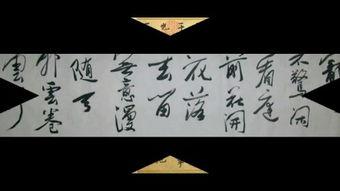 不驚閑
看庭
前花開
花落
去留
無意漫
随天
外雲卷
雲